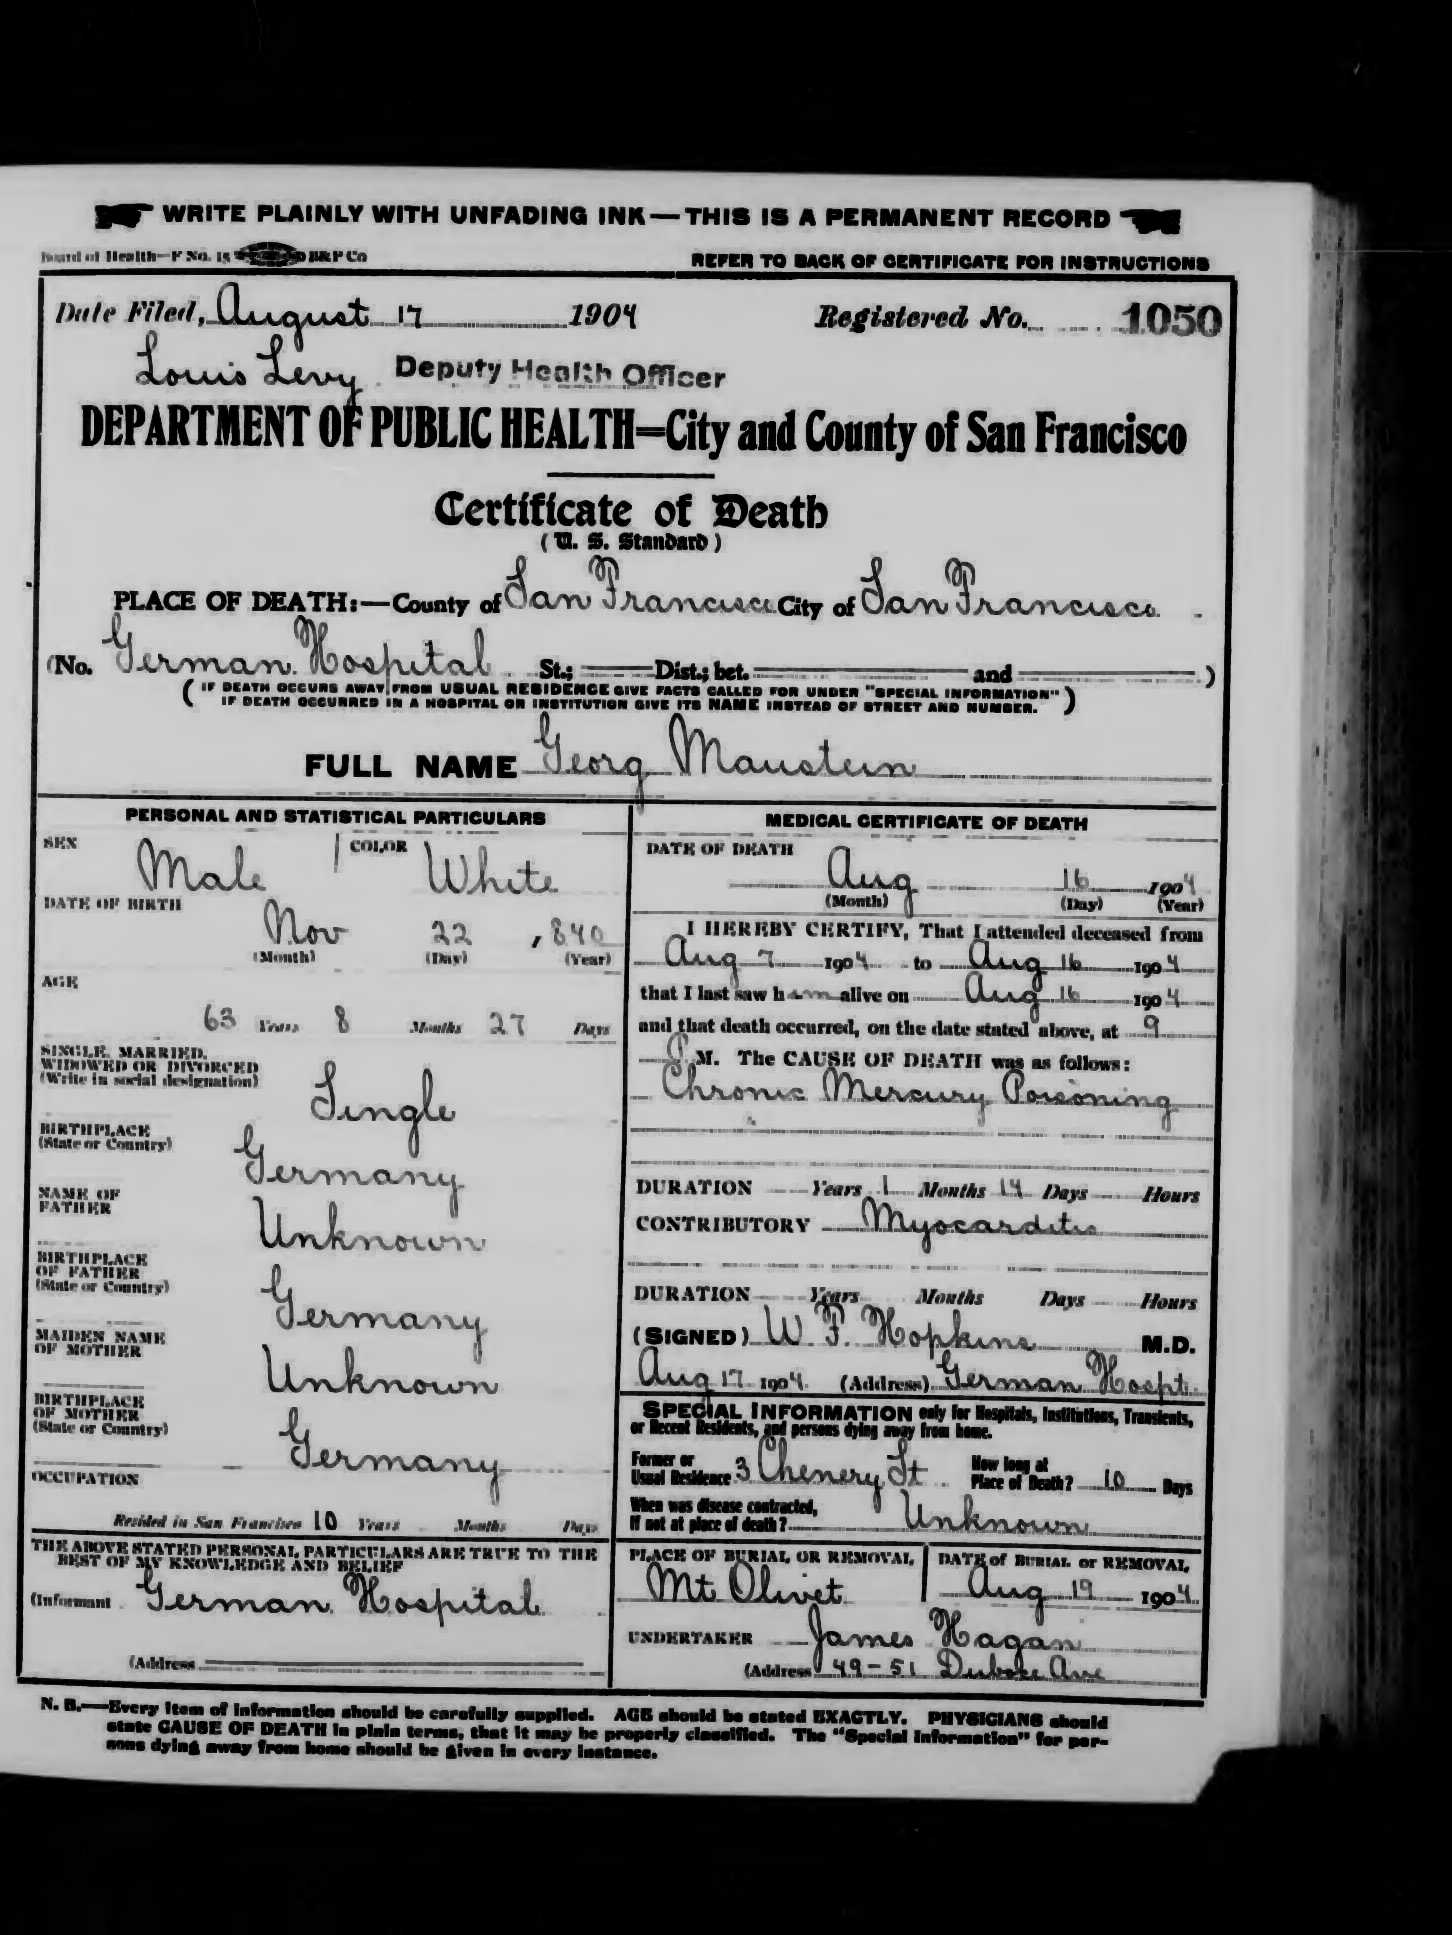 WRITE PLAINLY WITH UNFADING INK — THIS IS A PERMANENT RECORD
Board of Health—F No. 15 B&P Co
REFER TO BACK OF CERTIFICATE FOR INSTRUCTIONS
Date Filed, August 17 1904 Registered No. 1050
Louis Levy Deputy Health Officer
DEPARTMENT OF PUBLIC HEALTH=City and County of San Francisco
Certificate of Death
(U. S. Standard)
PLACE OF DEATH:—County of San Francisco City of San Francisco
(No. German Hospital St.; Dist.; bet. and )
( IF DEATH OCCURS AWAY FROM USUAL RESIDENCE GIVE FACTS CALLED FOR UNDER "SPECIAL INFORMATION"
IF DEATH OCCURRED IN A HOSPITAL OR INSTITUTION GIVE ITS NAME INSTEAD OF STREET AND NUMBER. )
FULL NAME Georg Maustein
PERSONAL AND STATISTICAL PARTICULARS
SEX Male COLOR White
DATE OF BIRTH
Nov 22 , 840
(Month) (Day) (Year)
AGE
63 Years 8 Months 27 Days
SINGLE, MARRIED,
WIDOWED OR DIVORCED
(Write in social designation)
Single
BIRTHPLACE
(State or Country)
Germany
NAME OF
FATHER
Unknown
BIRTHPLACE
OF FATHER
(State or Country)
Germany
MAIDEN NAME
OF MOTHER
Unknown
BIRTHPLACE
OF MOTHER
(State or Country)
Germany
OCCUPATION
Resided in San Francisco 10 Years Months Days
THE ABOVE STATED PERSONAL PARTICULARS ARE TRUE TO THE
BEST OF MY KNOWLEDGE AND BELIEF
(Informant German Hospital
(Address
MEDICAL CERTIFICATE OF DEATH
DATE OF DEATH
Aug 16 1904
(Month) (Day) (Year)
I HEREBY CERTIFY, That I attended deceased from
Aug 7 1904 to Aug 16 1904
that I last saw him alive on Aug 16 1904
and that death occurred, on the date stated above, at 9
P M. The CAUSE OF DEATH was as follows:
Chronic Mercury Poisoning
DURATION Years 1 Months 14 Days Hours
CONTRIBUTORY Myocarditis
DURATION Years Months Days Hours
(SIGNED) W. F. Hopkins M.D.
Aug 17 1904 (Address) German Hospt.
SPECIAL INFORMATION only for Hospitals, Institutions, Transients,
or Recent Residents, and persons dying away from home.
Former or
Usual Residence 3 Chenery St
How long at
Place of Death? 10 Days
When was disease contracted,
If not at place of death? Unknown
PLACE OF BURIAL OR REMOVAL
Mt Olivet
DATE of BURIAL or REMOVAL
Aug 19 1904
UNDERTAKER James Hagan
(Address 49-51 Duboce Ave
N. B.—Every item of information should be carefully supplied. AGE should be stated EXACTLY. PHYSICIANS should
state CAUSE OF DEATH in plain terms, that it may be properly classified. The "Special Information" for per-
sons dying away from home should be given in every instance.